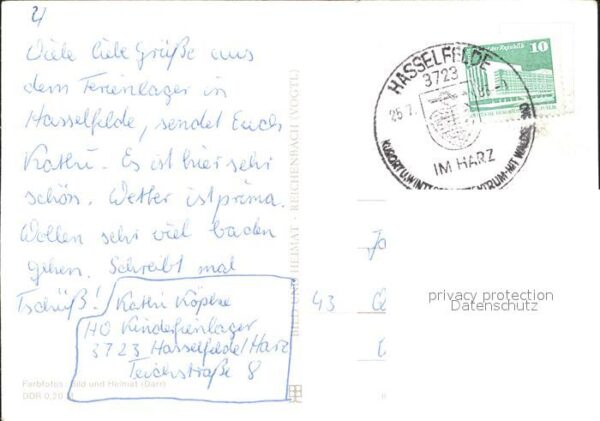 Viele liebe Grüße aus
dem Ferienlager in
Hasselfelde, sendet Euch
Kathi. Es ist hier sehr
schön. Wetter ist prima.
Wollen sehr viel baden
gehen. Schreibt mal
Tschüß!
Kathi Köpke
HO Kinderferienlager
3723 Hasselfelde/Harz
Teichstraße 8
Farbfotos: Bild und Heimat (Darr)
DDR 0,20 M
BILD UND HEIMAT · REICHENBACH (VOGTL)
HASSELFELDE
3723
25.7.
IM HARZ
KURORT U. WINTERSPORTZENTRUM MIT
der Republik
10
43
privacy protection
Datenschutz